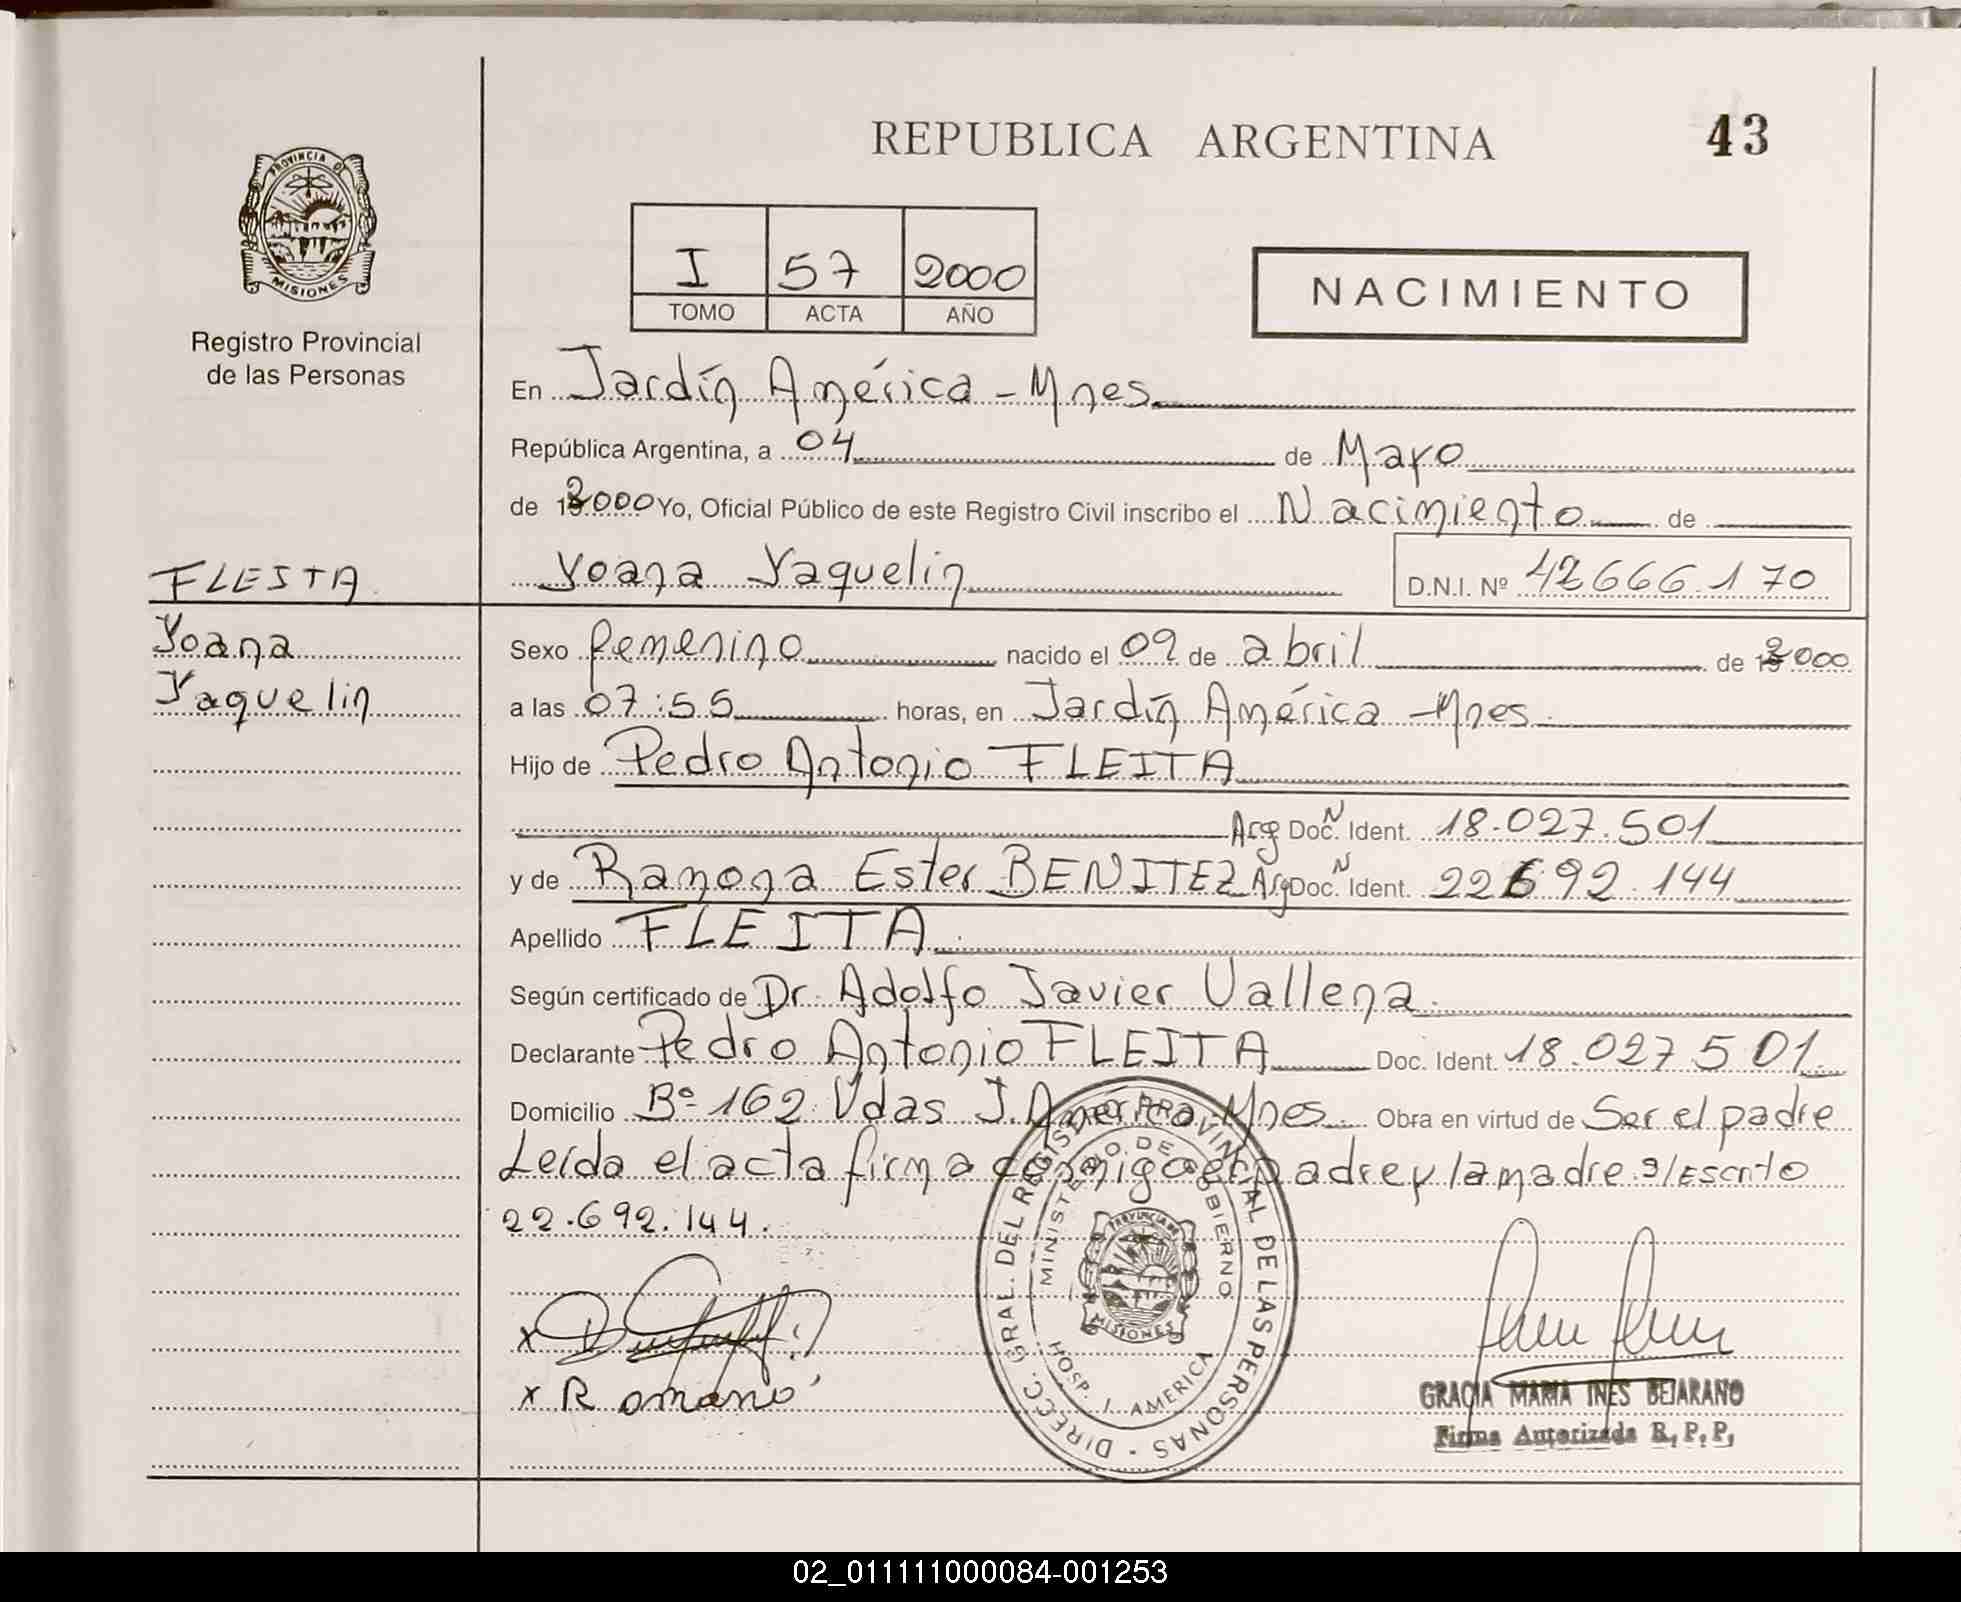 REPUBLICA ARGENTINA
43
PROVINCIA DE
MISIONES
Registro Provincial
de las Personas
I 57 2000
TOMO ACTA AÑO
NACIMIENTO
En Jardín América - Mnes.
República Argentina, a 04 de Mayo
de 2000 Yo, Oficial Público de este Registro Civil inscribo el Nacimiento de
Yoana Yaquelin D.N.I. Nº 42666.170
FLEITA
Yoana
Yaquelin
Sexo femenino nacido el 09 de abril de 2000
a las 07:55 horas, en Jardín América - Mnes.
Hijo de Pedro Antonio FLEITA
Arg Doc. N Ident. 18.027.501
y de Ramona Ester BENITEZ Arg Doc. N Ident. 22692.144
Apellido FLEITA
Según certificado de Dr. Adolfo Javier Vallena.
Declarante Pedro Antonio FLEITA Doc. Ident. 18.027501.
Domicilio Bº 162 Vdas J. America - Mnes. Obra en virtud de Ser el padre
Leída el acta firma conmigo el padre y la madre s/Escrito
22.692.144.
x
x Romano
DIRECC. GRAL. DEL REGISTRO PROVINCIAL DE LAS PERSONAS
MINISTERIO DE GOBIERNO
PROVINCIA DE
MISIONES
HOSP. J. AMERICA
GRACIA MARIA INES BEJARANO
Firma Autorizada R.P.P.
02_011111000084-001253